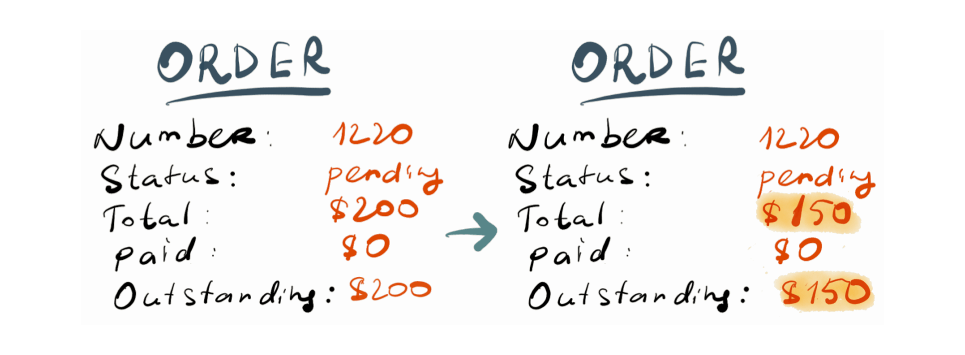 ORDER
Number: 1220
Status: pending
Total: $200
Paid: $0
Outstanding: $200
ORDER
Number: 1220
Status: pending
Total: $150
Paid: $0
Outstanding: $150